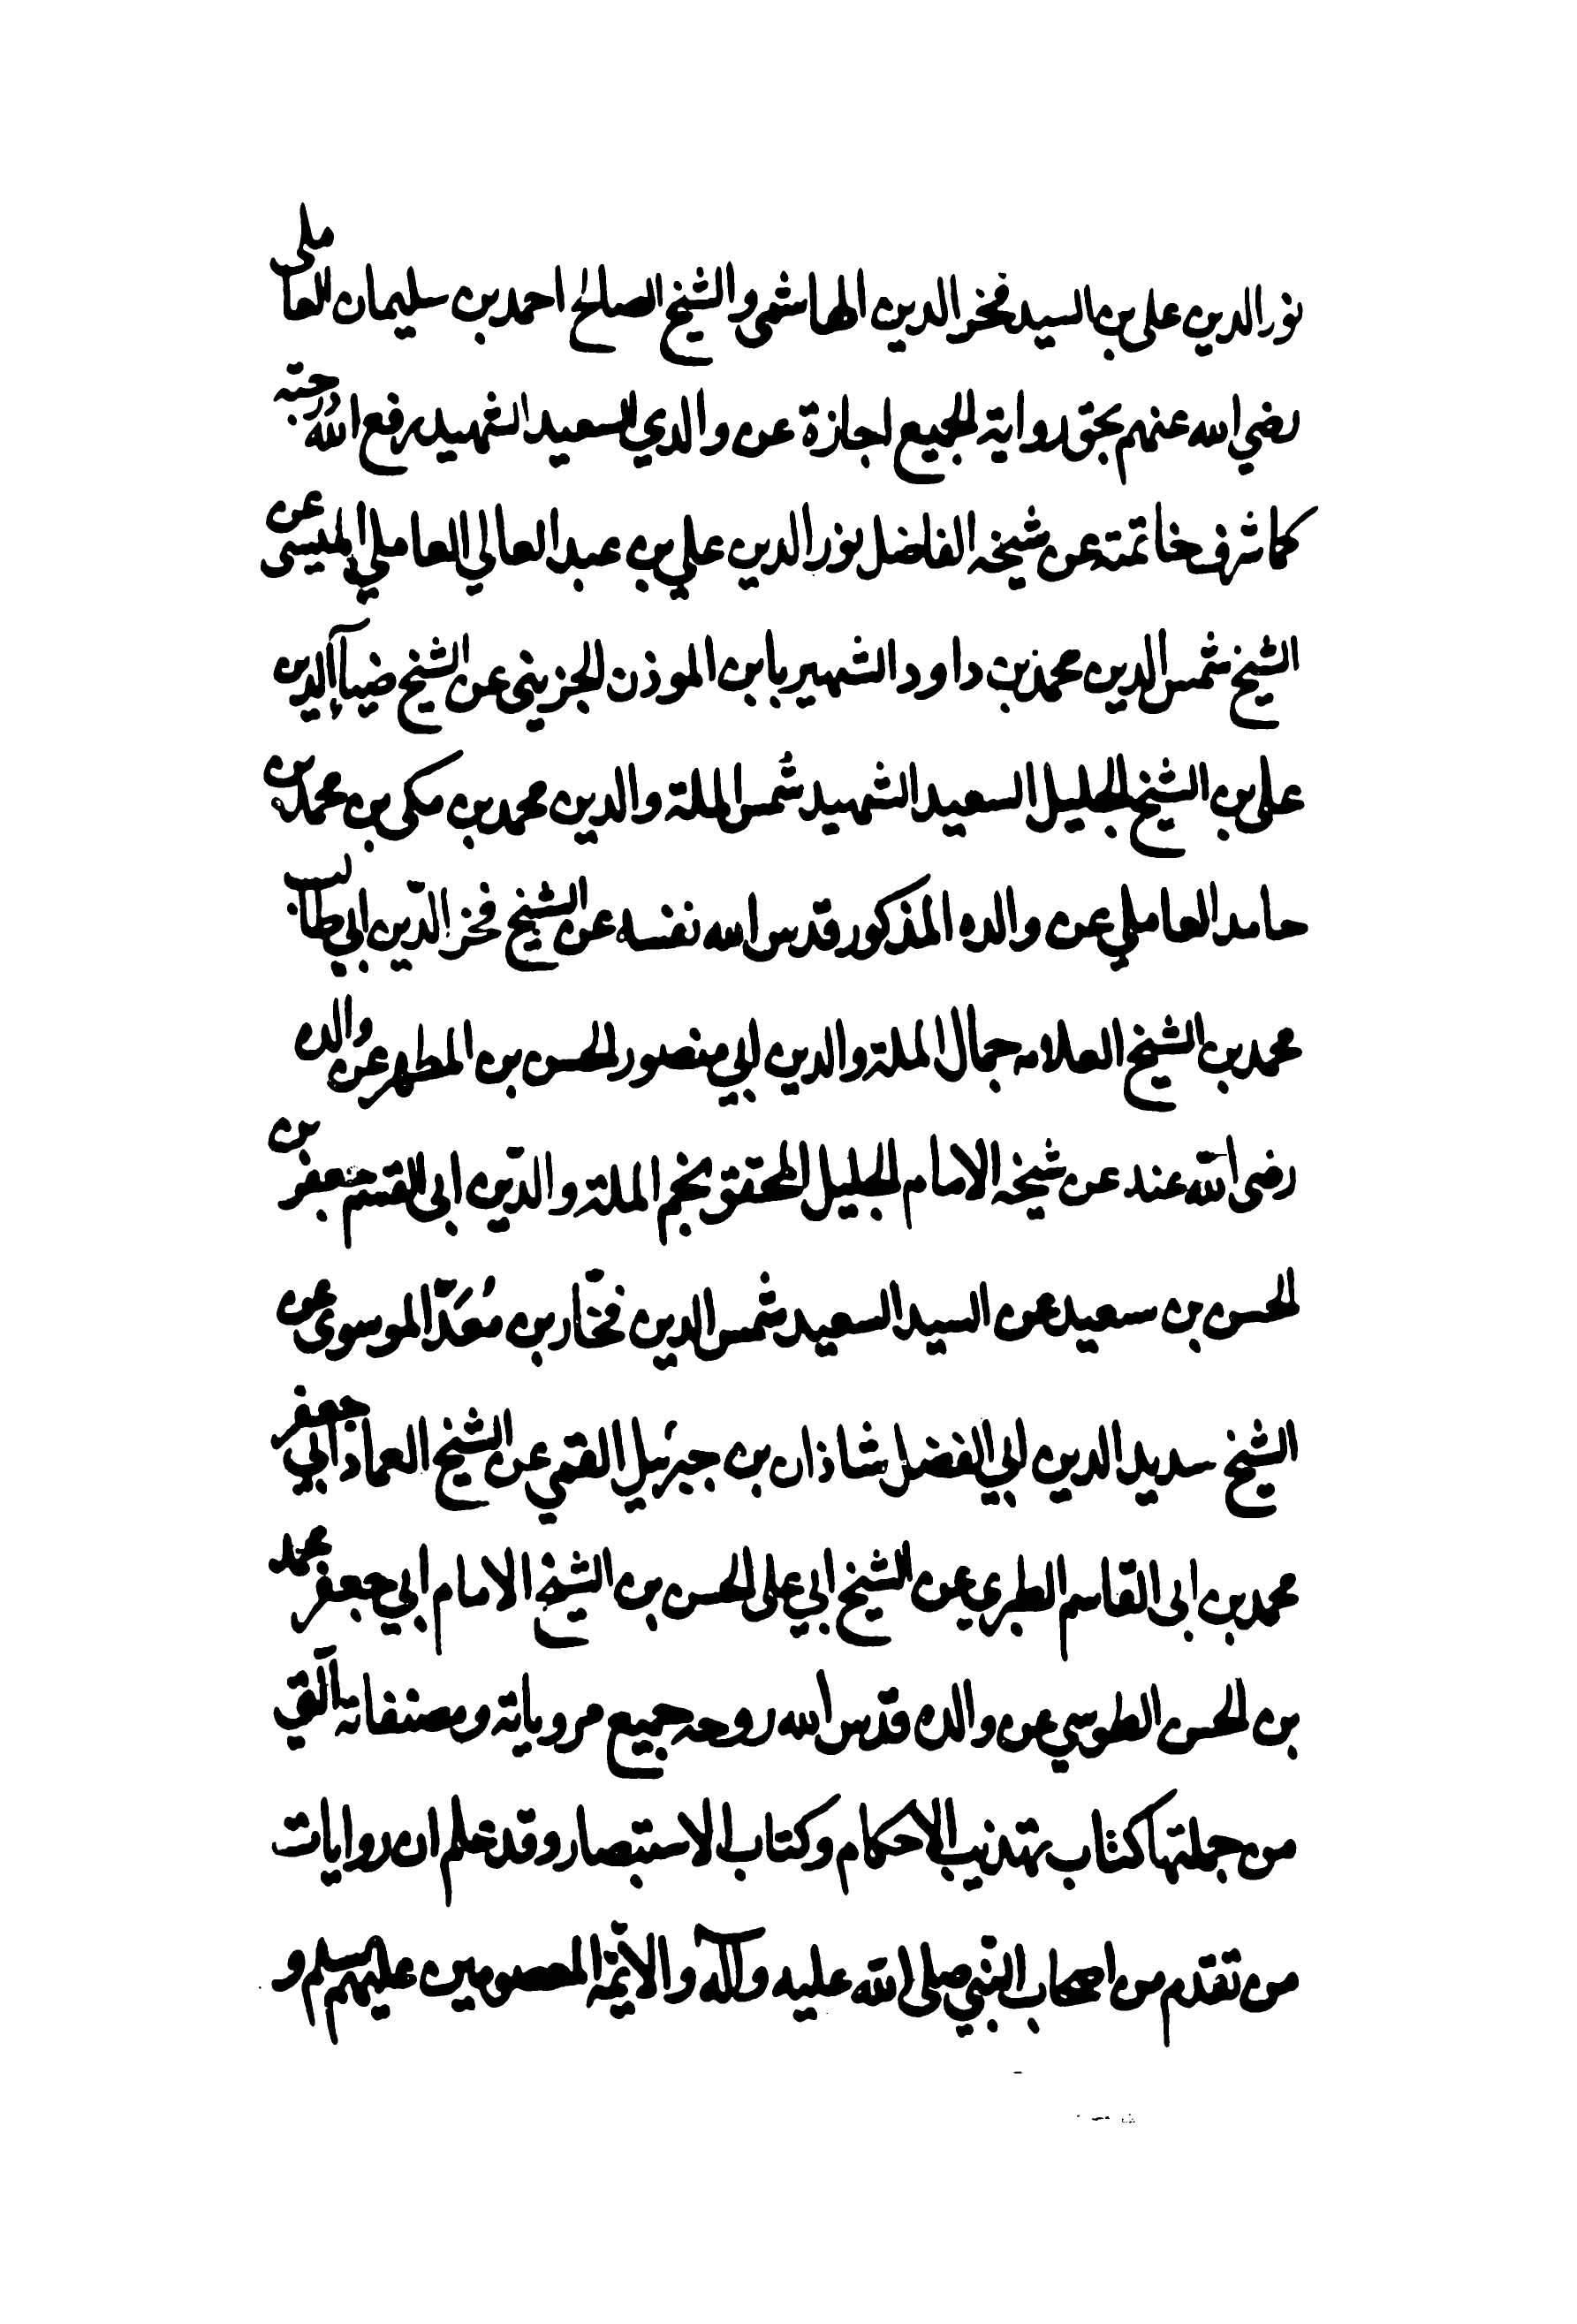 نور الدين علي بن السيد فخر الدين الهاشمي والشيخ الصالح احمد بن سليمان العاملي
رضي الله عنهم بحق رواية الجميع اجازة عن والدي السعيد الشهيد رفع الله درجته
كما شرف خاتمته عن شيخه الفاضل نور الدين علي بن عبد العالي العاملي الميسي عن
الشيخ شمس الدين محمد بن داود الشهير بابن الموذن الجزيني عن الشيخ ضياء الدين
علي بن الشيخ الجليل السعيد الشهيد شمس الملة والدين محمد بن مكي بن محمد بن
حامد العاملي عن والده المذكور قدس الله نفسه عن الشيخ فخر الدّين ابي طالب
محمد بن الشيخ العلامه جمال الملة والدين ابي منصور الحسن بن المطهر عن والده
رضي الله عنه عن شيخه الامام الجليل المحقق نجم الملة والدّين ابي القسم جعفر بن
الحسن بن سعيد عن السيد السعيد شمس الدين فخّار بن مُعَدّ الموسوي عن
الشيخ سديد الدين ابي الفضل شاذان بن جبرئيل القمي عن الشيخ العماد ابي جعفر
محمد بن ابي القاسم الطبري عن الشيخ ابي علي الحسن بن الشيخ الامام ابي جعفر محمد
بن الحسن الطوسي عن والده قدّس الله روحه جميع مروياته ومصنفاته الّتي
من جملتها كتاب تهذيب الاحكام وكتاب الاستبصار وقد علم ان روايات
من تقدم من اصحاب النّبي صلى الله عليه وآله والائمّة المعصومين عليهم السلم و